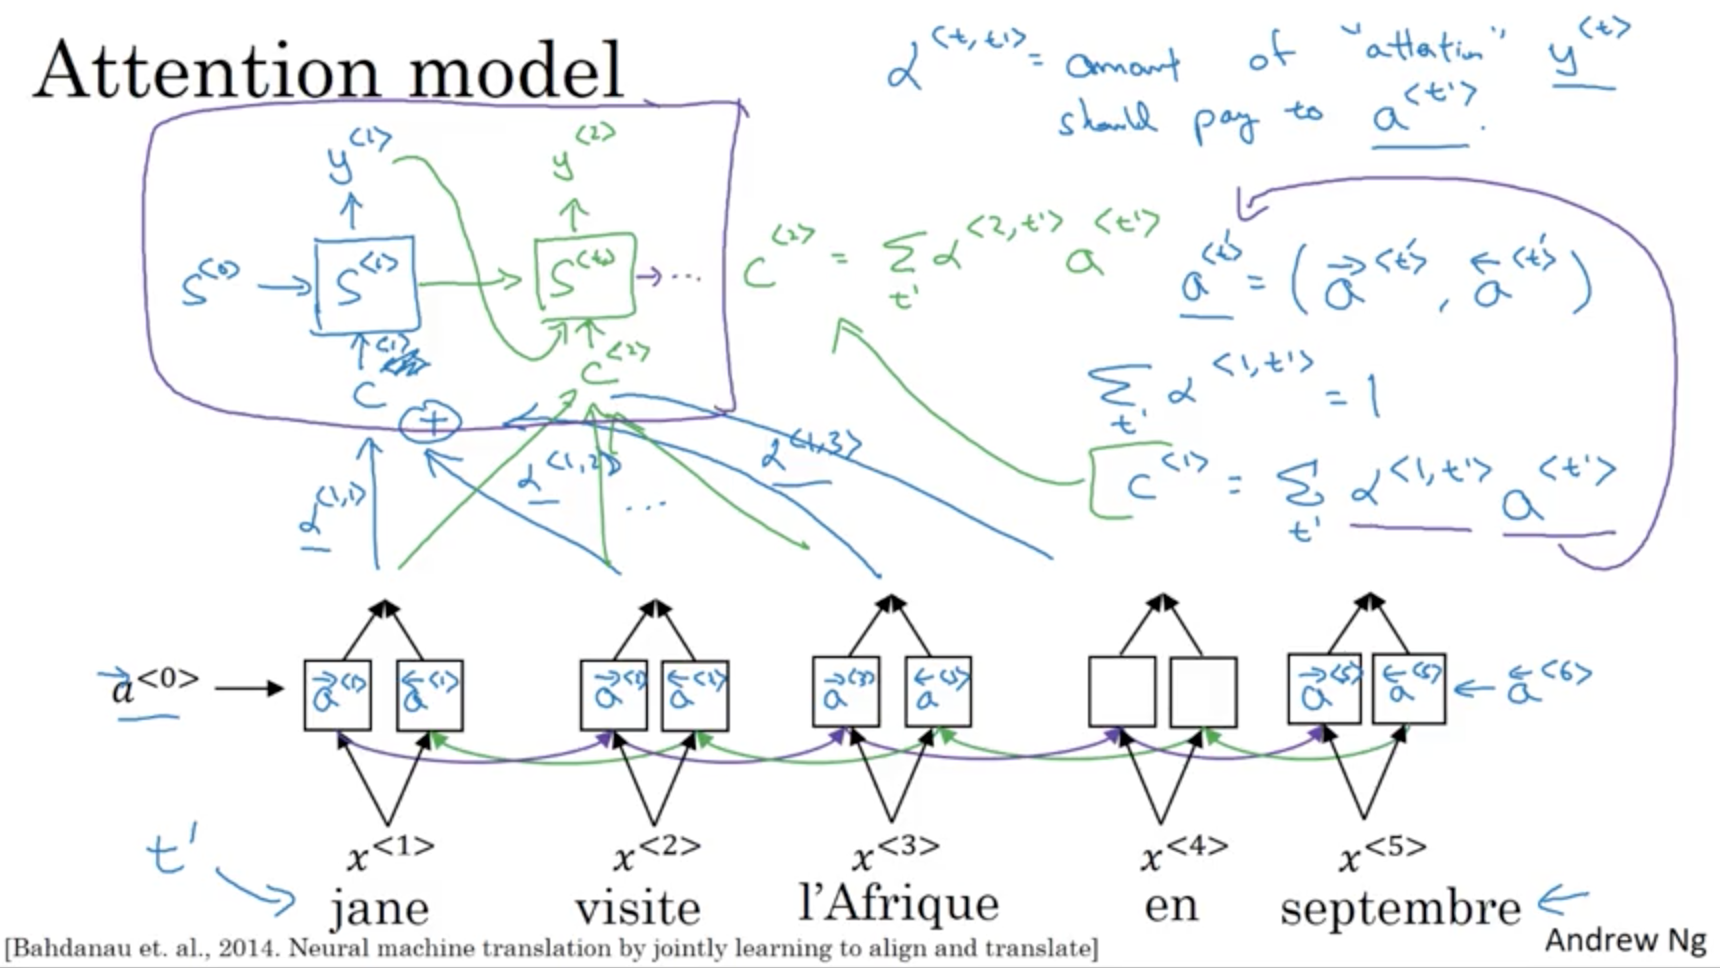 Attention model
α<t,t'> = amount of "attention" y<t>
should pay to a<t'>.
y<1> y<2>
S<0> → S<1> → S<2> → ...
C<1> C<2>
+
C<2> = Σt' α<2,t'> a<t'>
a<t'> = (→a<t'>, ←a<t'>)
Σt' α<1,t'> = 1
C<1> = Σt' α<1,t'> a<t'>
α<1,1> α<1,2> α<1,3>
...
→a<0> →a<1> ←a<1> →a<2> ←a<2> →a<3> ←a<3> →a<5> ←a<5> ← ←a<6>
x<1> x<2> x<3> x<4> x<5>
t' jane visite l'Afrique en septembre
[Bahdanau et. al., 2014. Neural machine translation by jointly learning to align and translate]
Andrew Ng